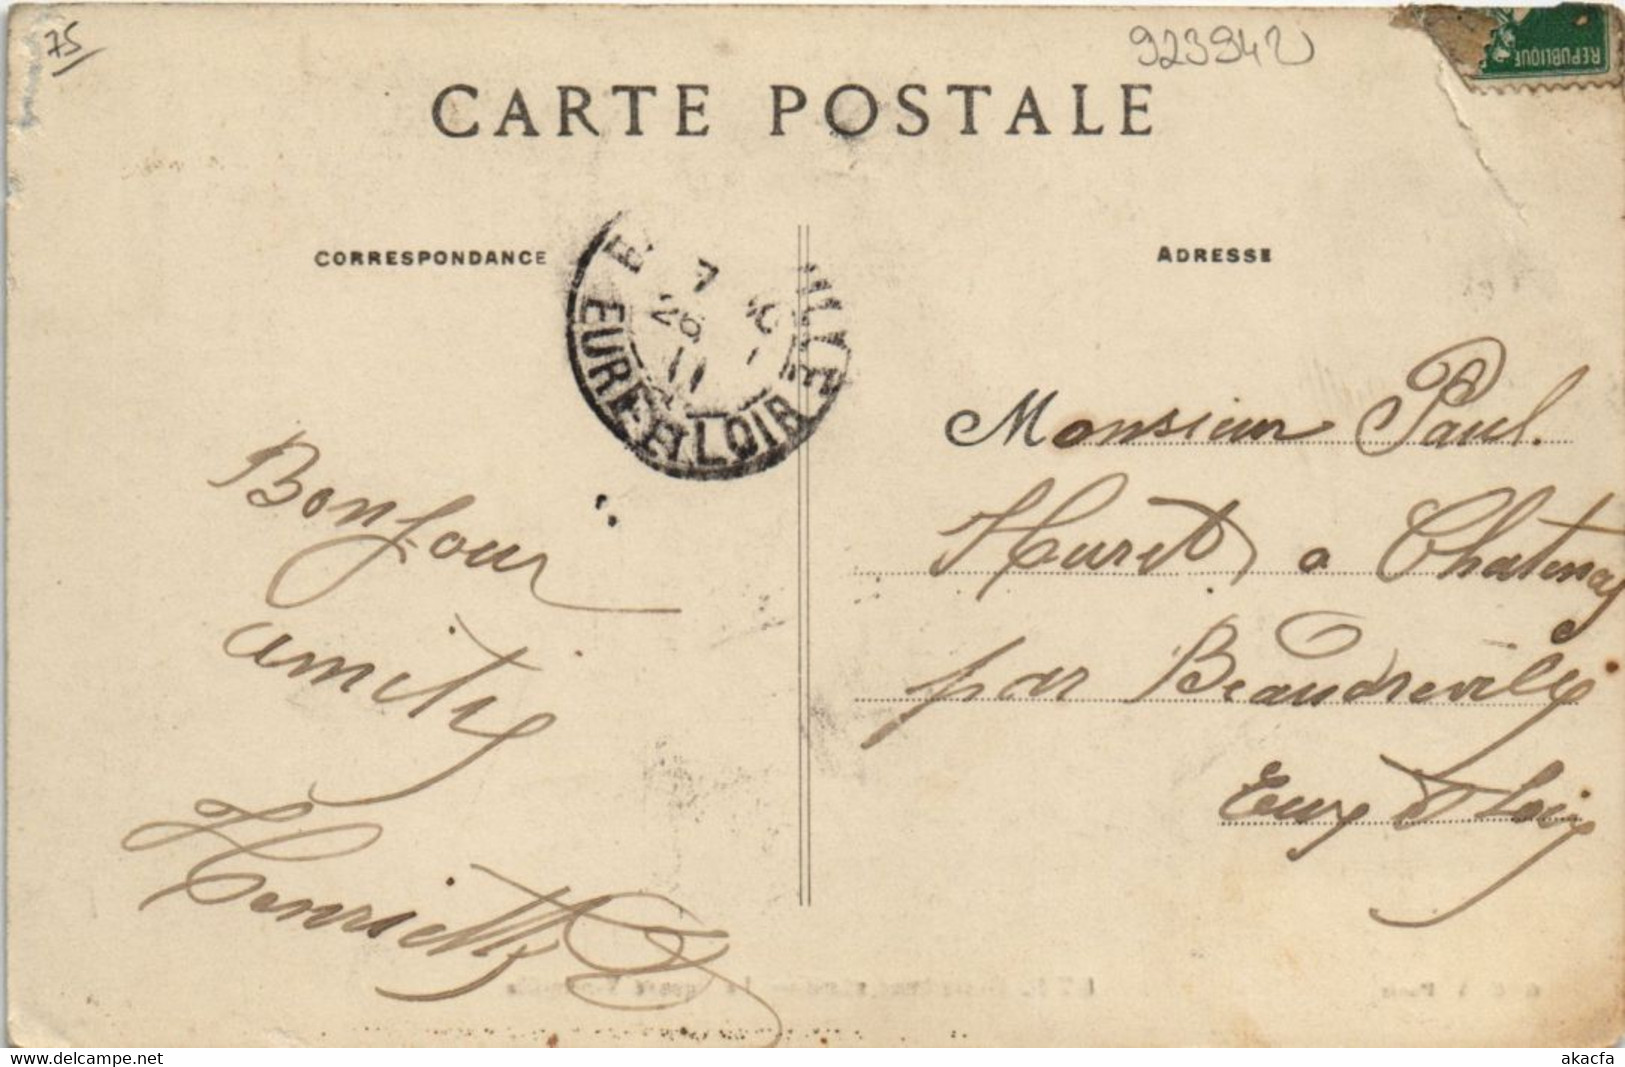 75
923942
REPUBLIQUE
CARTE POSTALE
CORRESPONDANCE
ADRESSE
7
26
11
EURE-ET-LOIR
Bonjour
amitié
Henriette
Monsieur Paul.
Huret a Chatenay
par Beaudreville
Eure et Loir
delcampe.net
akacfa